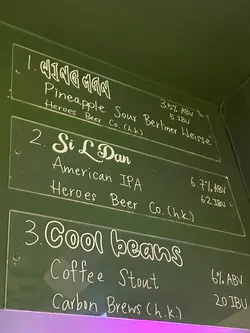 1. WING MAN
Pineapple Sour Berliner Weisse 3.5% ABV
Heroes Beer Co. (h.k.) 5 IBU
2. Si L Dan
American IPA 6.7% ABV
Heroes Beer Co. (h.k.) 62 IBU
3. Cool beans
Coffee Stout 6% ABV
Carbon Brews (h.k) 20 IBU